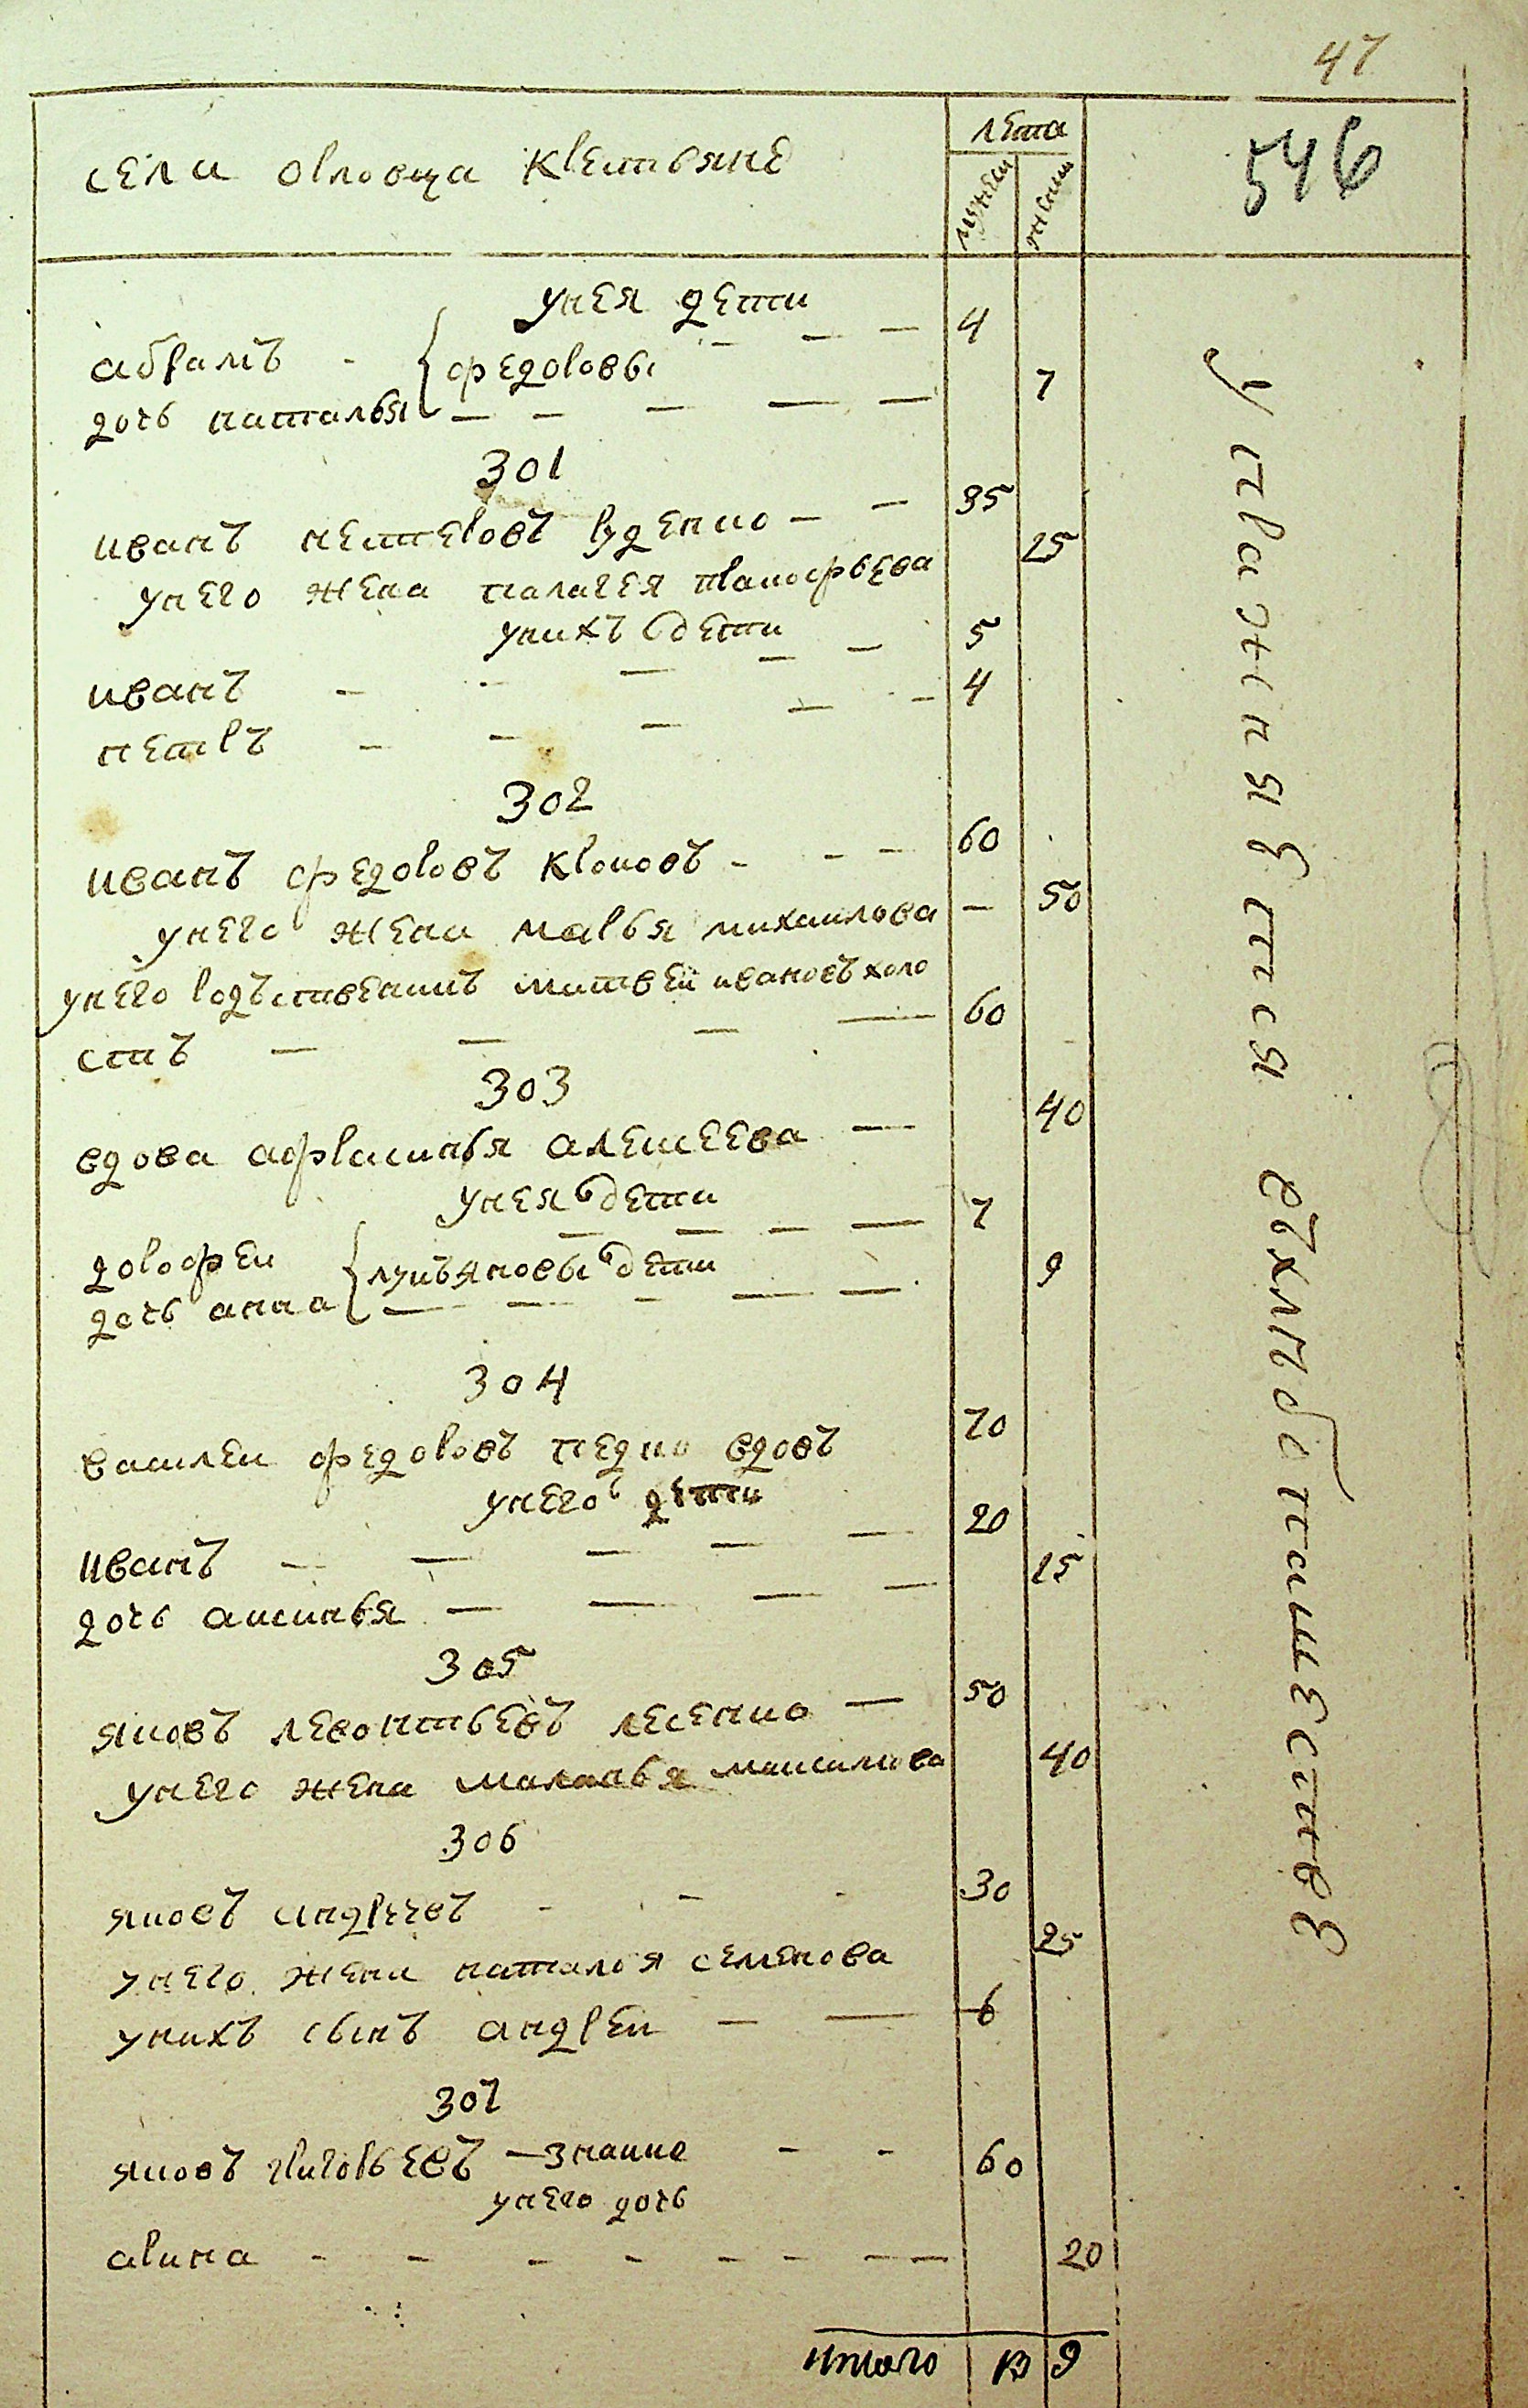 47
546
села орловца крестьяне
лета
мужеш
женш
унея дети
абрамъ - федоровы — — 4
дочь наталья — — — — — 7
301
иванъ нестеровъ руденко — — 35
унего жена палагея пракофьева 25
унихъ дети
иванъ — — — — — 5
петръ — — — — — 4
302
иванъ федоровъ кроковъ — — — 60
унего жена марья михаилова — 50
унего родъственикъ матвей ивановъ холо
стъ — — — — 60
303
вдова афрасинья алексеева — 40
унея дети
дорофеи лукъяновы дети — — — — 7
дочь анна — — — — — 9
304
василеи федоровъ педко вдовъ 70
унего дети
иванъ — — — — — 20
дочь аксинья — — — — 15
305
яковъ левонтьевъ лесенко — 50
унего жена маланья максимова 40
306
яковъ андреевъ - - - 30
унего жена наталья семенова 25
унихъ сынъ андреи — — 6
307
яковъ григорьевъ — знаико - - 60
унего дочь
арина - - - - - - — — 20
итого 13 9